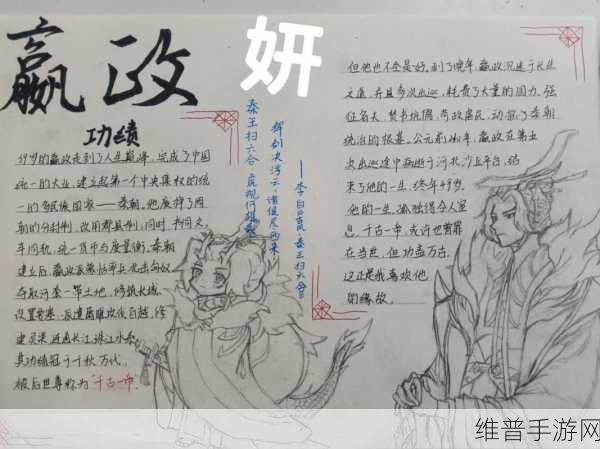 嬴政
妍
功绩
39岁的嬴政走到了人生巅峰，完成了中国
统一的大业，建立起第一个中央集权的统
一的多民族国家——秦朝。他废掉了周
朝的分封制，改用郡县制，同时，书同文，
车同轨，统一货币与度量衡。秦朝
建立后，嬴政派蒙恬率兵攻击匈奴
夺取河套一带土地，修筑长城，
设置要塞，派遣屠睢攻伐百越，修
建灵渠，连通长江、珠江水系
其功绩冠于千秋万代，
被后世尊称为“千古一帝”。
秦王扫六合，虎视何雄哉
挥剑决浮云，诸侯尽西来
——李白《古风·秦王扫六合》
但他也不全是好，到了晚年，嬴政沉迷于长生
之道，并且多次出巡，耗费了大量的国力。强
征名夫，焚书坑儒，苛政虐民，动摇了秦朝
统治的根基。公元前210年，嬴政在第五
次出巡途中病逝于河北沙丘平台，结
束了他的一生，终年49岁。
他的一生，孤独得令人窒
息，千古一帝，或许也曾罪
在当世，但功盖万古。
这正是我喜欢他
的缘故。
维普手游网